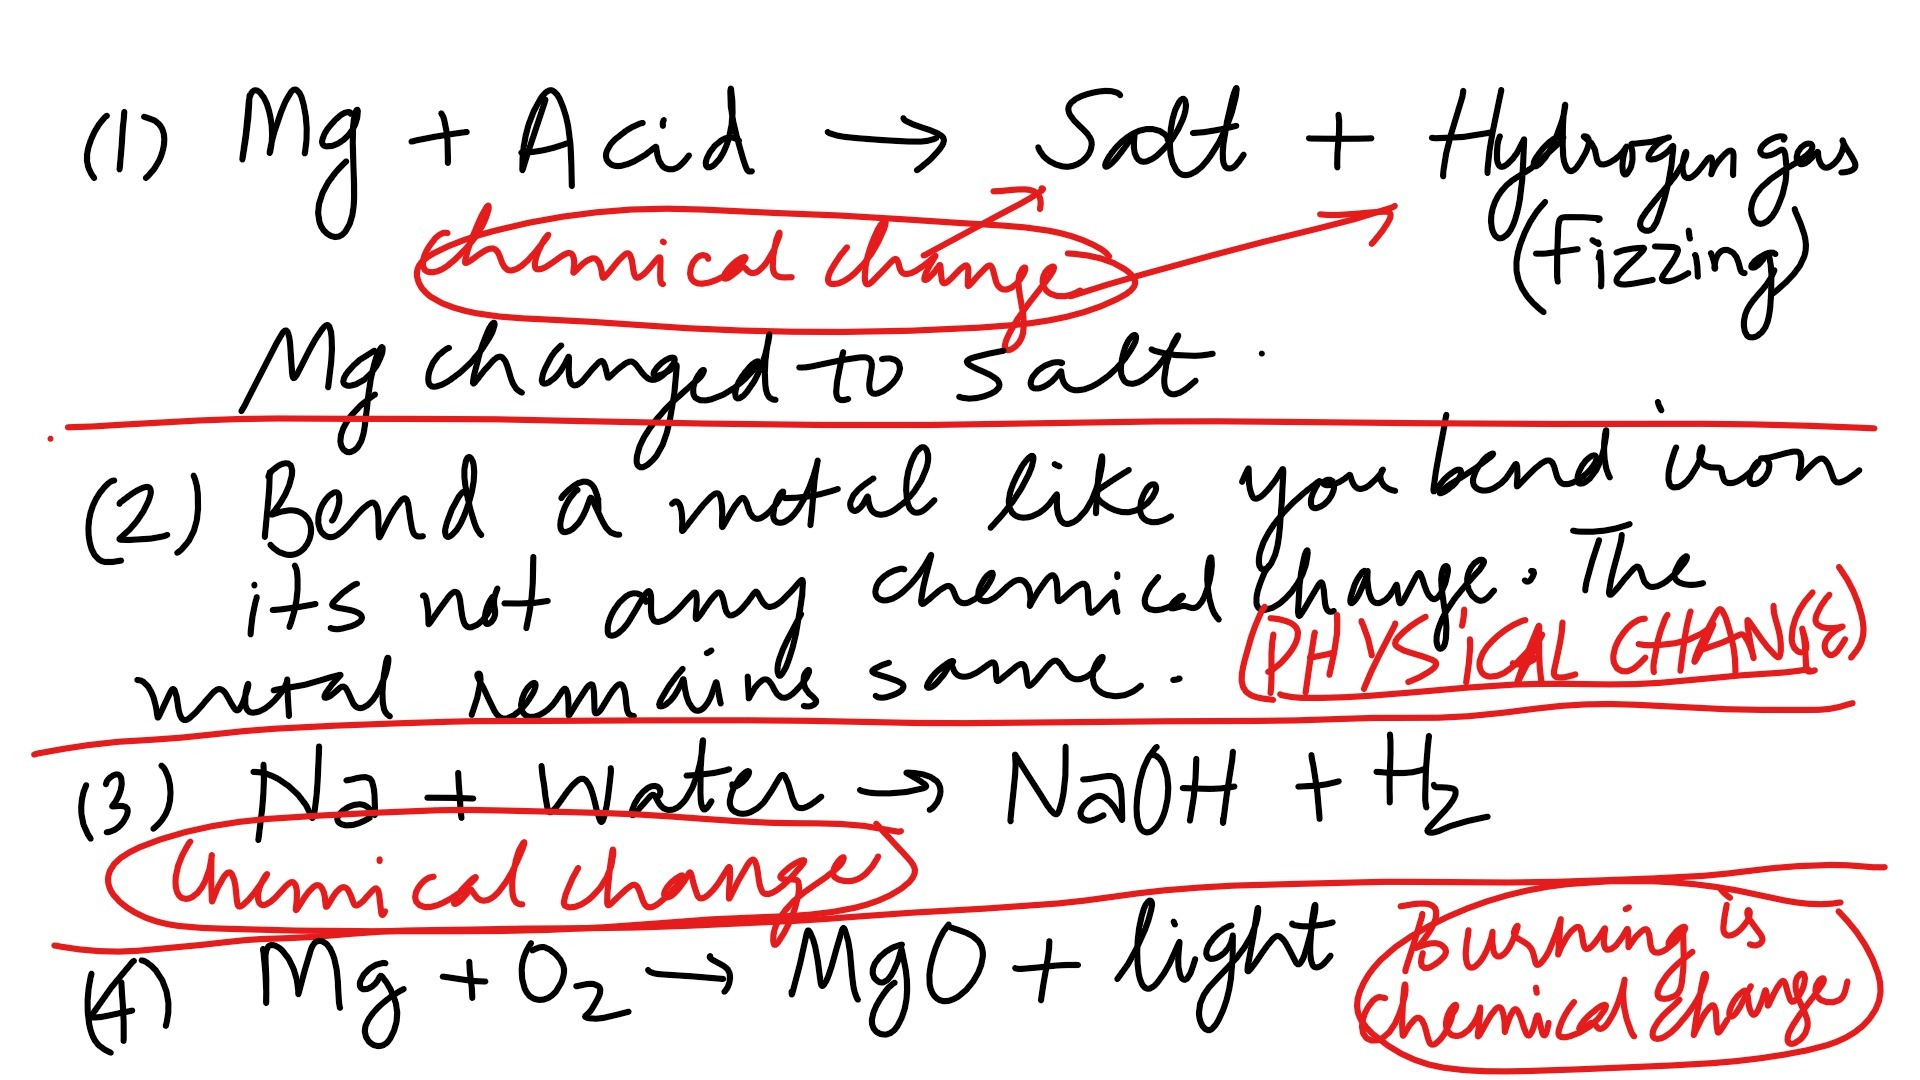 (1) Mg + Acid → Salt + Hydrogen gas
(fizzing)
chemical change
Mg changed to salt.
(2) Bend a metal like you bend iron
its not any chemical change. The
metal remains same. (PHYSICAL CHANGE)
(3) Na + Water → NaOH + H2
Chemical change
(4) Mg + O2 → MgO + light
Burning is
chemical change